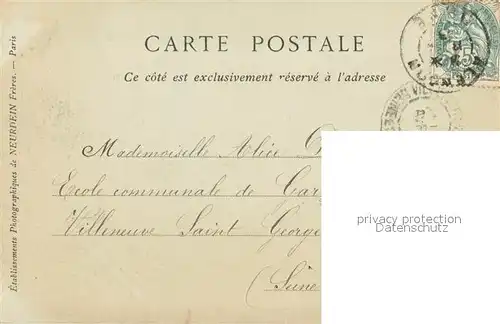 CARTE POSTALE
Ce côté est exclusivement réservé à l'adresse
Mademoiselle Alice
Ecole communale de
Villeneuve Saint George
(Seine
privacy protection
Datenschutz
Établissements Photographiques de NEURDEIN Frères. — Paris